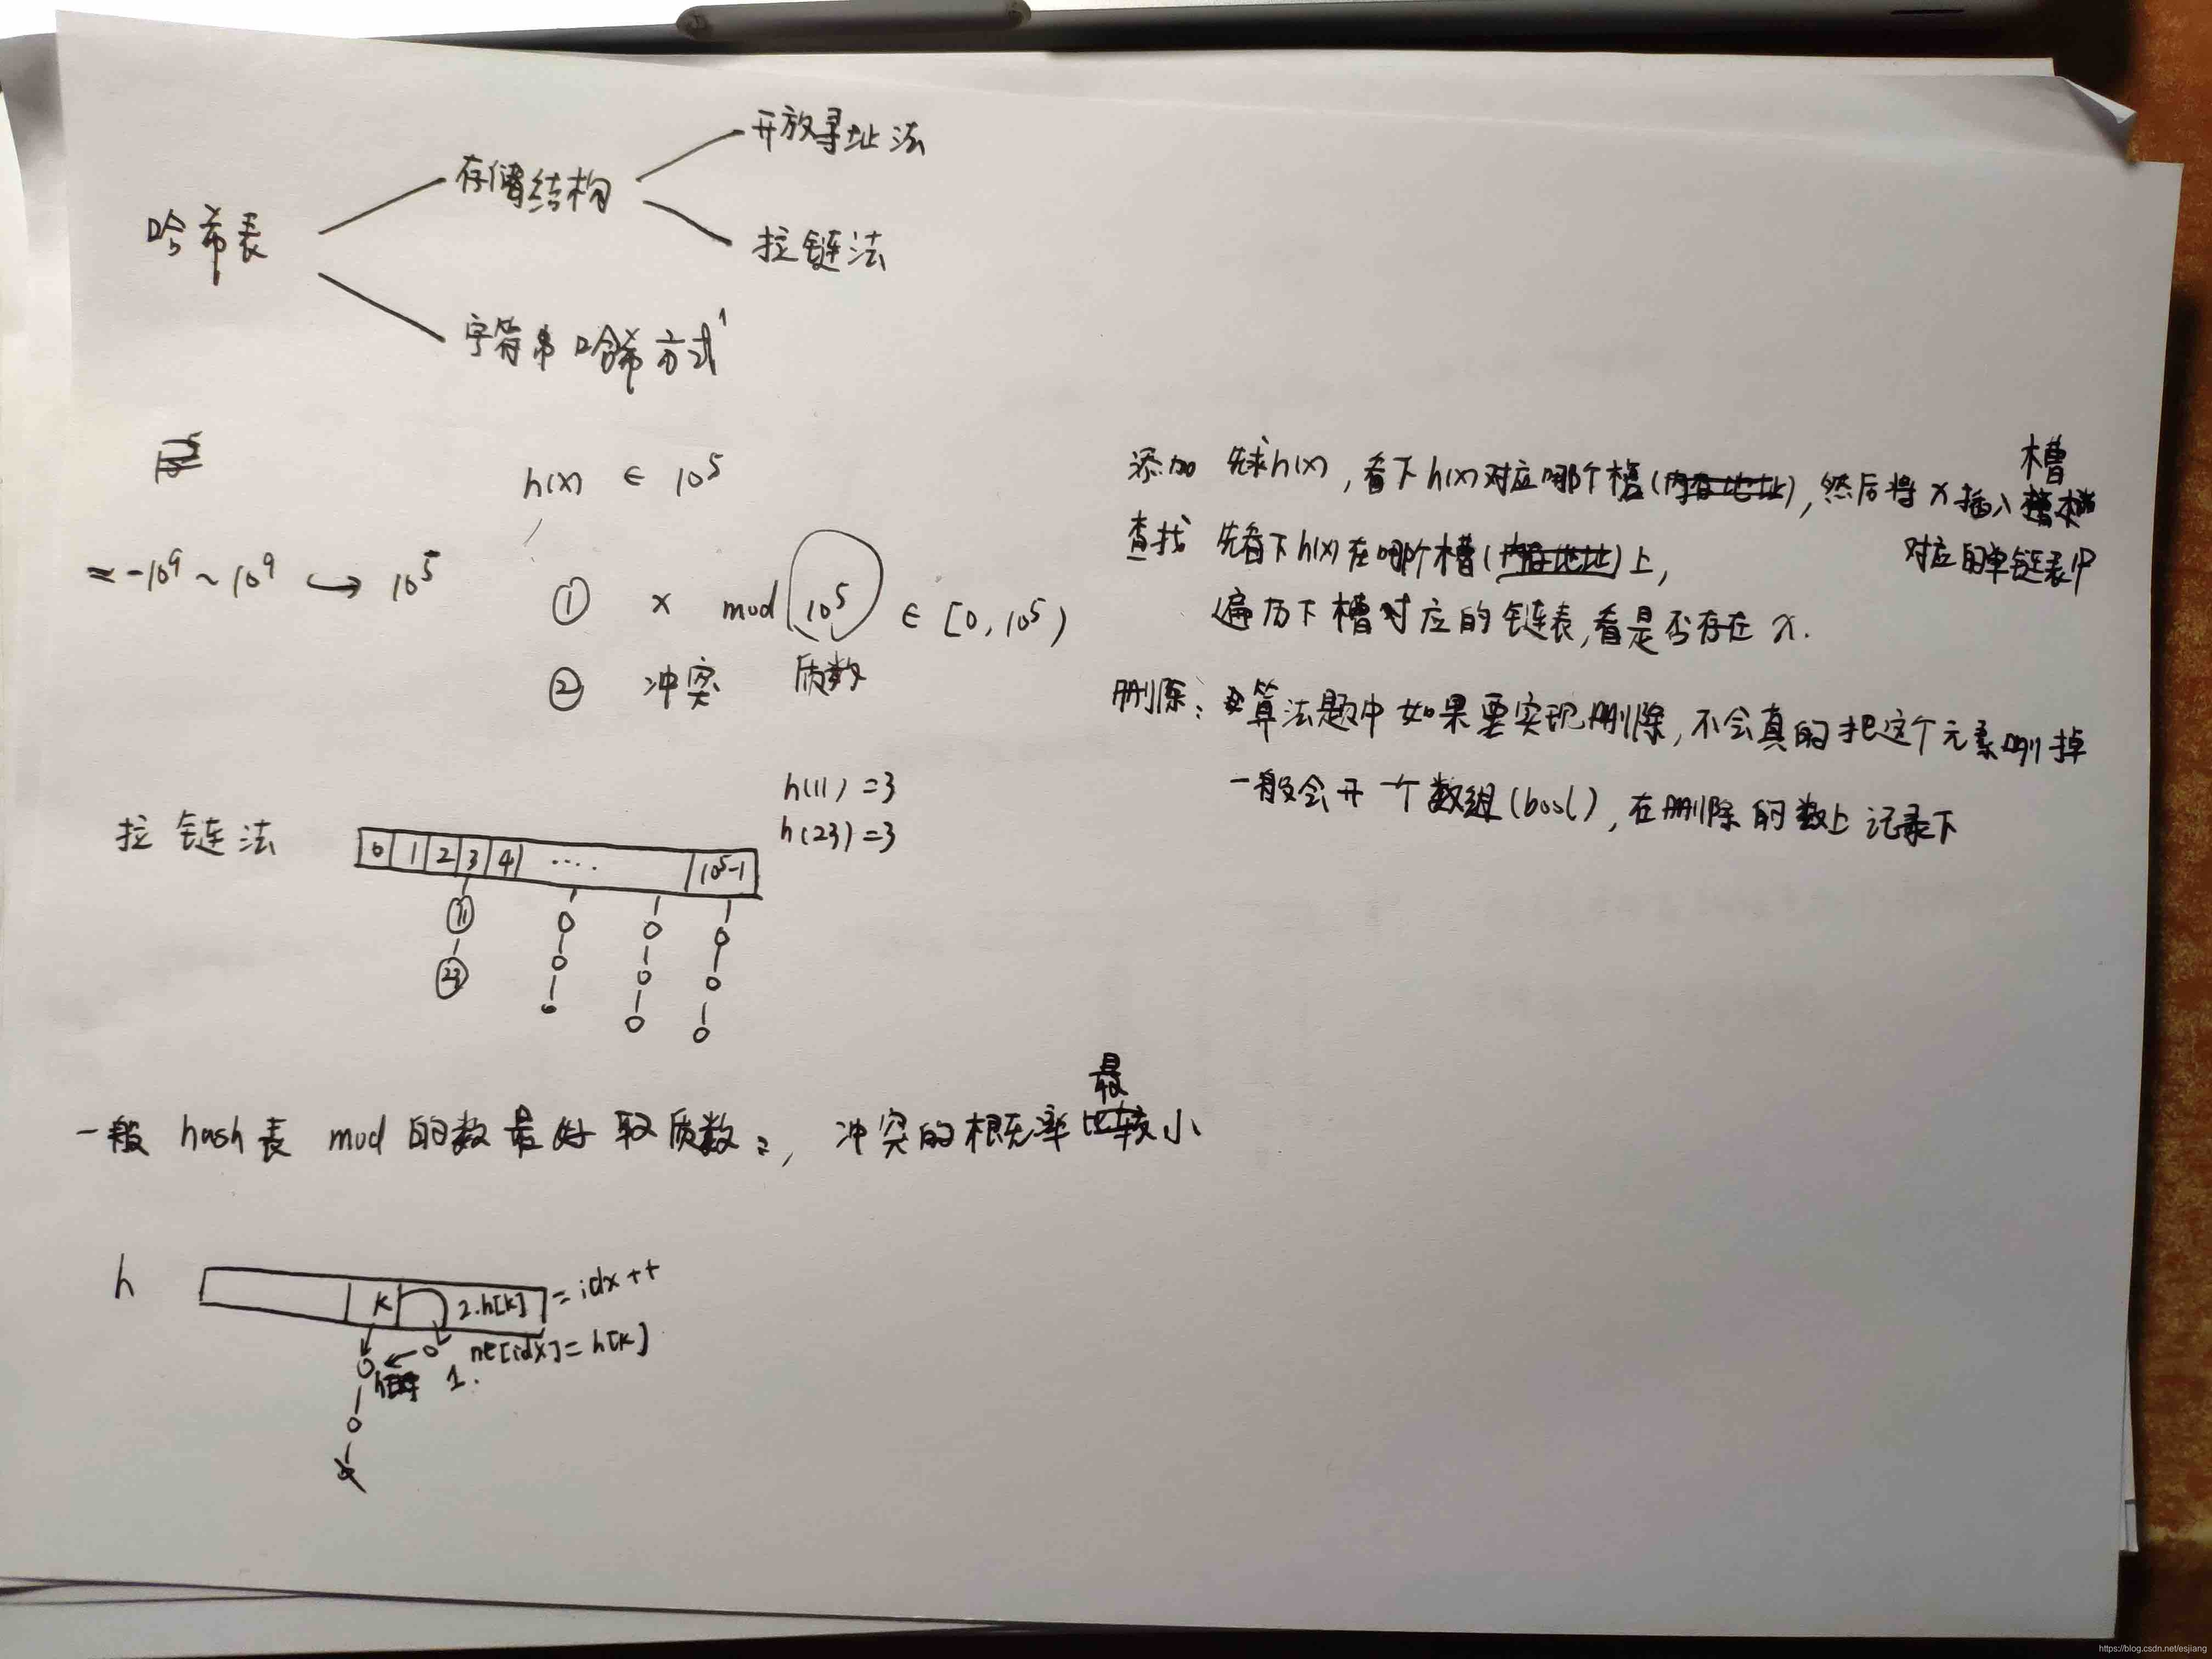 开放寻址法
存储结构
哈希表
拉链法
字符串哈希方式
h(x) ∈ 10^5
-10^9 ~ 10^9 → 10^5
① x mod 10^5 ∈ [0, 10^5)
② 冲突 质数
添加 先求h(x),看下h(x)对应哪个槽(内存地址),然后将x插入槽
对应的单链表中
查找 先看下h(x)在哪个槽(内存地址)上,
遍历下槽对应的链表,看是否存在x.
删除: 算法题中如果要实现删除,不会真的把这个元素删掉
一般会开一个数组(bool),在删除的数上记录下
h(11) = 3
h(23) = 3
拉链法
0 1 2 3 4 .... 10^5-1
11
23
一般 hash表 mod 的数最好取质数, 冲突的概率最小
h
k 2.h[k] = idx++
1. ne[idx] = h[k]
https://blog.csdn.net/esjiang